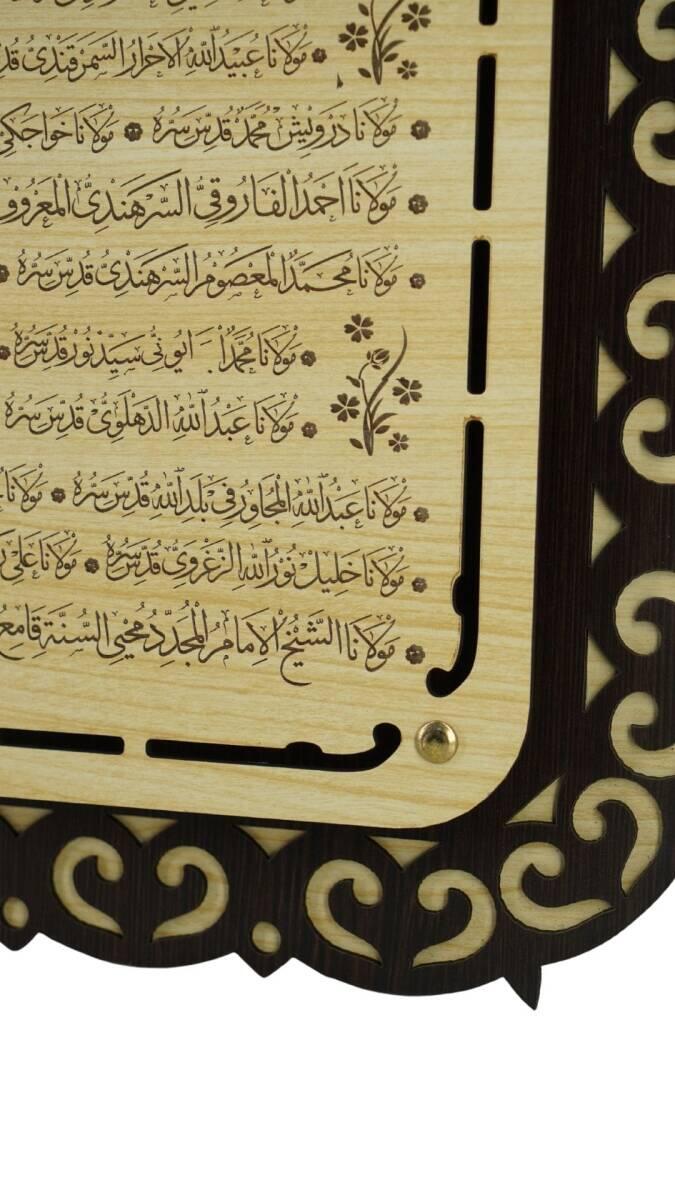 مَوْلَانَا عُبَيْدُ اللّٰهِ الْاَحْرَارُ السَّمَرْقَنْدِىُّ
مَوْلَانَا دَرْوِيشْ مُحَمَّدْ قُدِّسَ سِرُّهُ مَوْلَانَا خَوَاجَكِى
مَوْلَانَا اَحْمَدُ الْفَارُوقِىُّ السَّرْهَنْدِىُّ الْمَعْرُوفُ
مَوْلَانَا مُحَمَّدُ الْمَعْصُومُ السَّرْهَنْدِىُّ قُدِّسَ سِرُّهُ
مَوْلَانَا مُحَمَّدُ سَيِّدْ نُورْ قُدِّسَ سِرُّهُ
مَوْلَانَا عَبْدُ اللّٰهِ الدَّهْلَوِىُّ قُدِّسَ سِرُّهُ
مَوْلَانَا عَبْدُ اللّٰهِ الْمُجَاوِرُ فِى بَلَدِ اللّٰهِ قُدِّسَ سِرُّهُ مَوْلَانَا
مَوْلَانَا خَلِيلْ نُورُ اللّٰهِ الزَّغْرَوِىُّ قُدِّسَ سِرُّهُ مَوْلَانَا عَلِى
مَوْلَانَا الشَّيْخُ الْاِمَامُ الْمُجَدِّدُ مُحْيِى السُّنَّةِ قَامِعُ